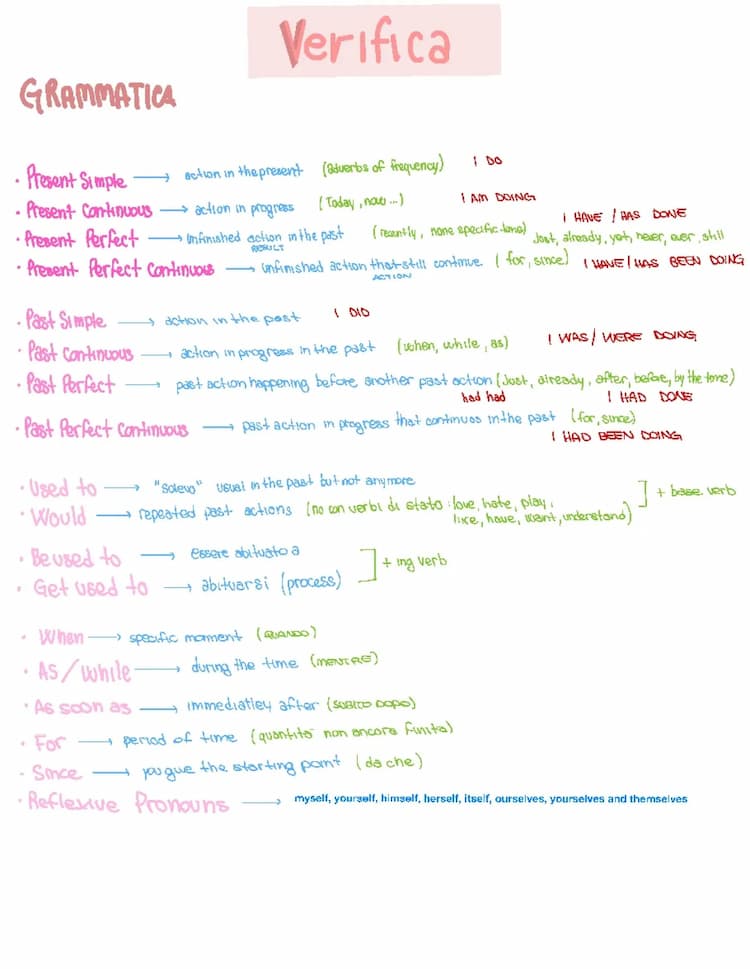 Verifica
GRAMMATICA
• Present Simple → action in the present (adverbs of frequency) I DO
• Present Continuous → action in progress (Today, now...) I AM DOING
I HAVE / HAS DONE
• Present Perfect → unfinished action in the past (recently, none specific time) Just, already, yet, never, ever, still
RESULT
• Present Perfect Continuous → unfinished action that still continue (for, since) I HAVE/HAS BEEN DOING
ACTION
• Past Simple → action in the past I DID
• Past Continuous → action in progress in the past (when, while, as) I WAS/WERE DOING
• Past Perfect → past action happening before another past action (Just, already, after, before, by the time)
had had I HAD DONE
• Past Perfect Continuous → past action in progress that continues in the past (for, since)
I HAD BEEN DOING
• Used to → "solevo" usual in the past but not anymore
• Would → repeated past actions (no con verbi di stato: love, hate, play,
like, have, want, understand) ] + base verb
• Be used to → essere abituato a
• Get used to → abituarsi (process) ] + ing verb
• When → specific moment (QUANDO)
• As/While → during the time (MENTRE)
• As soon as → immediatley after (SUBITO DOPO)
• For → period of time (quantità non ancora finita)
• Since → you give the starting point (da che)
• Reflexive Pronouns → myself, yourself, himself, herself, itself, ourselves, yourselves and themselves